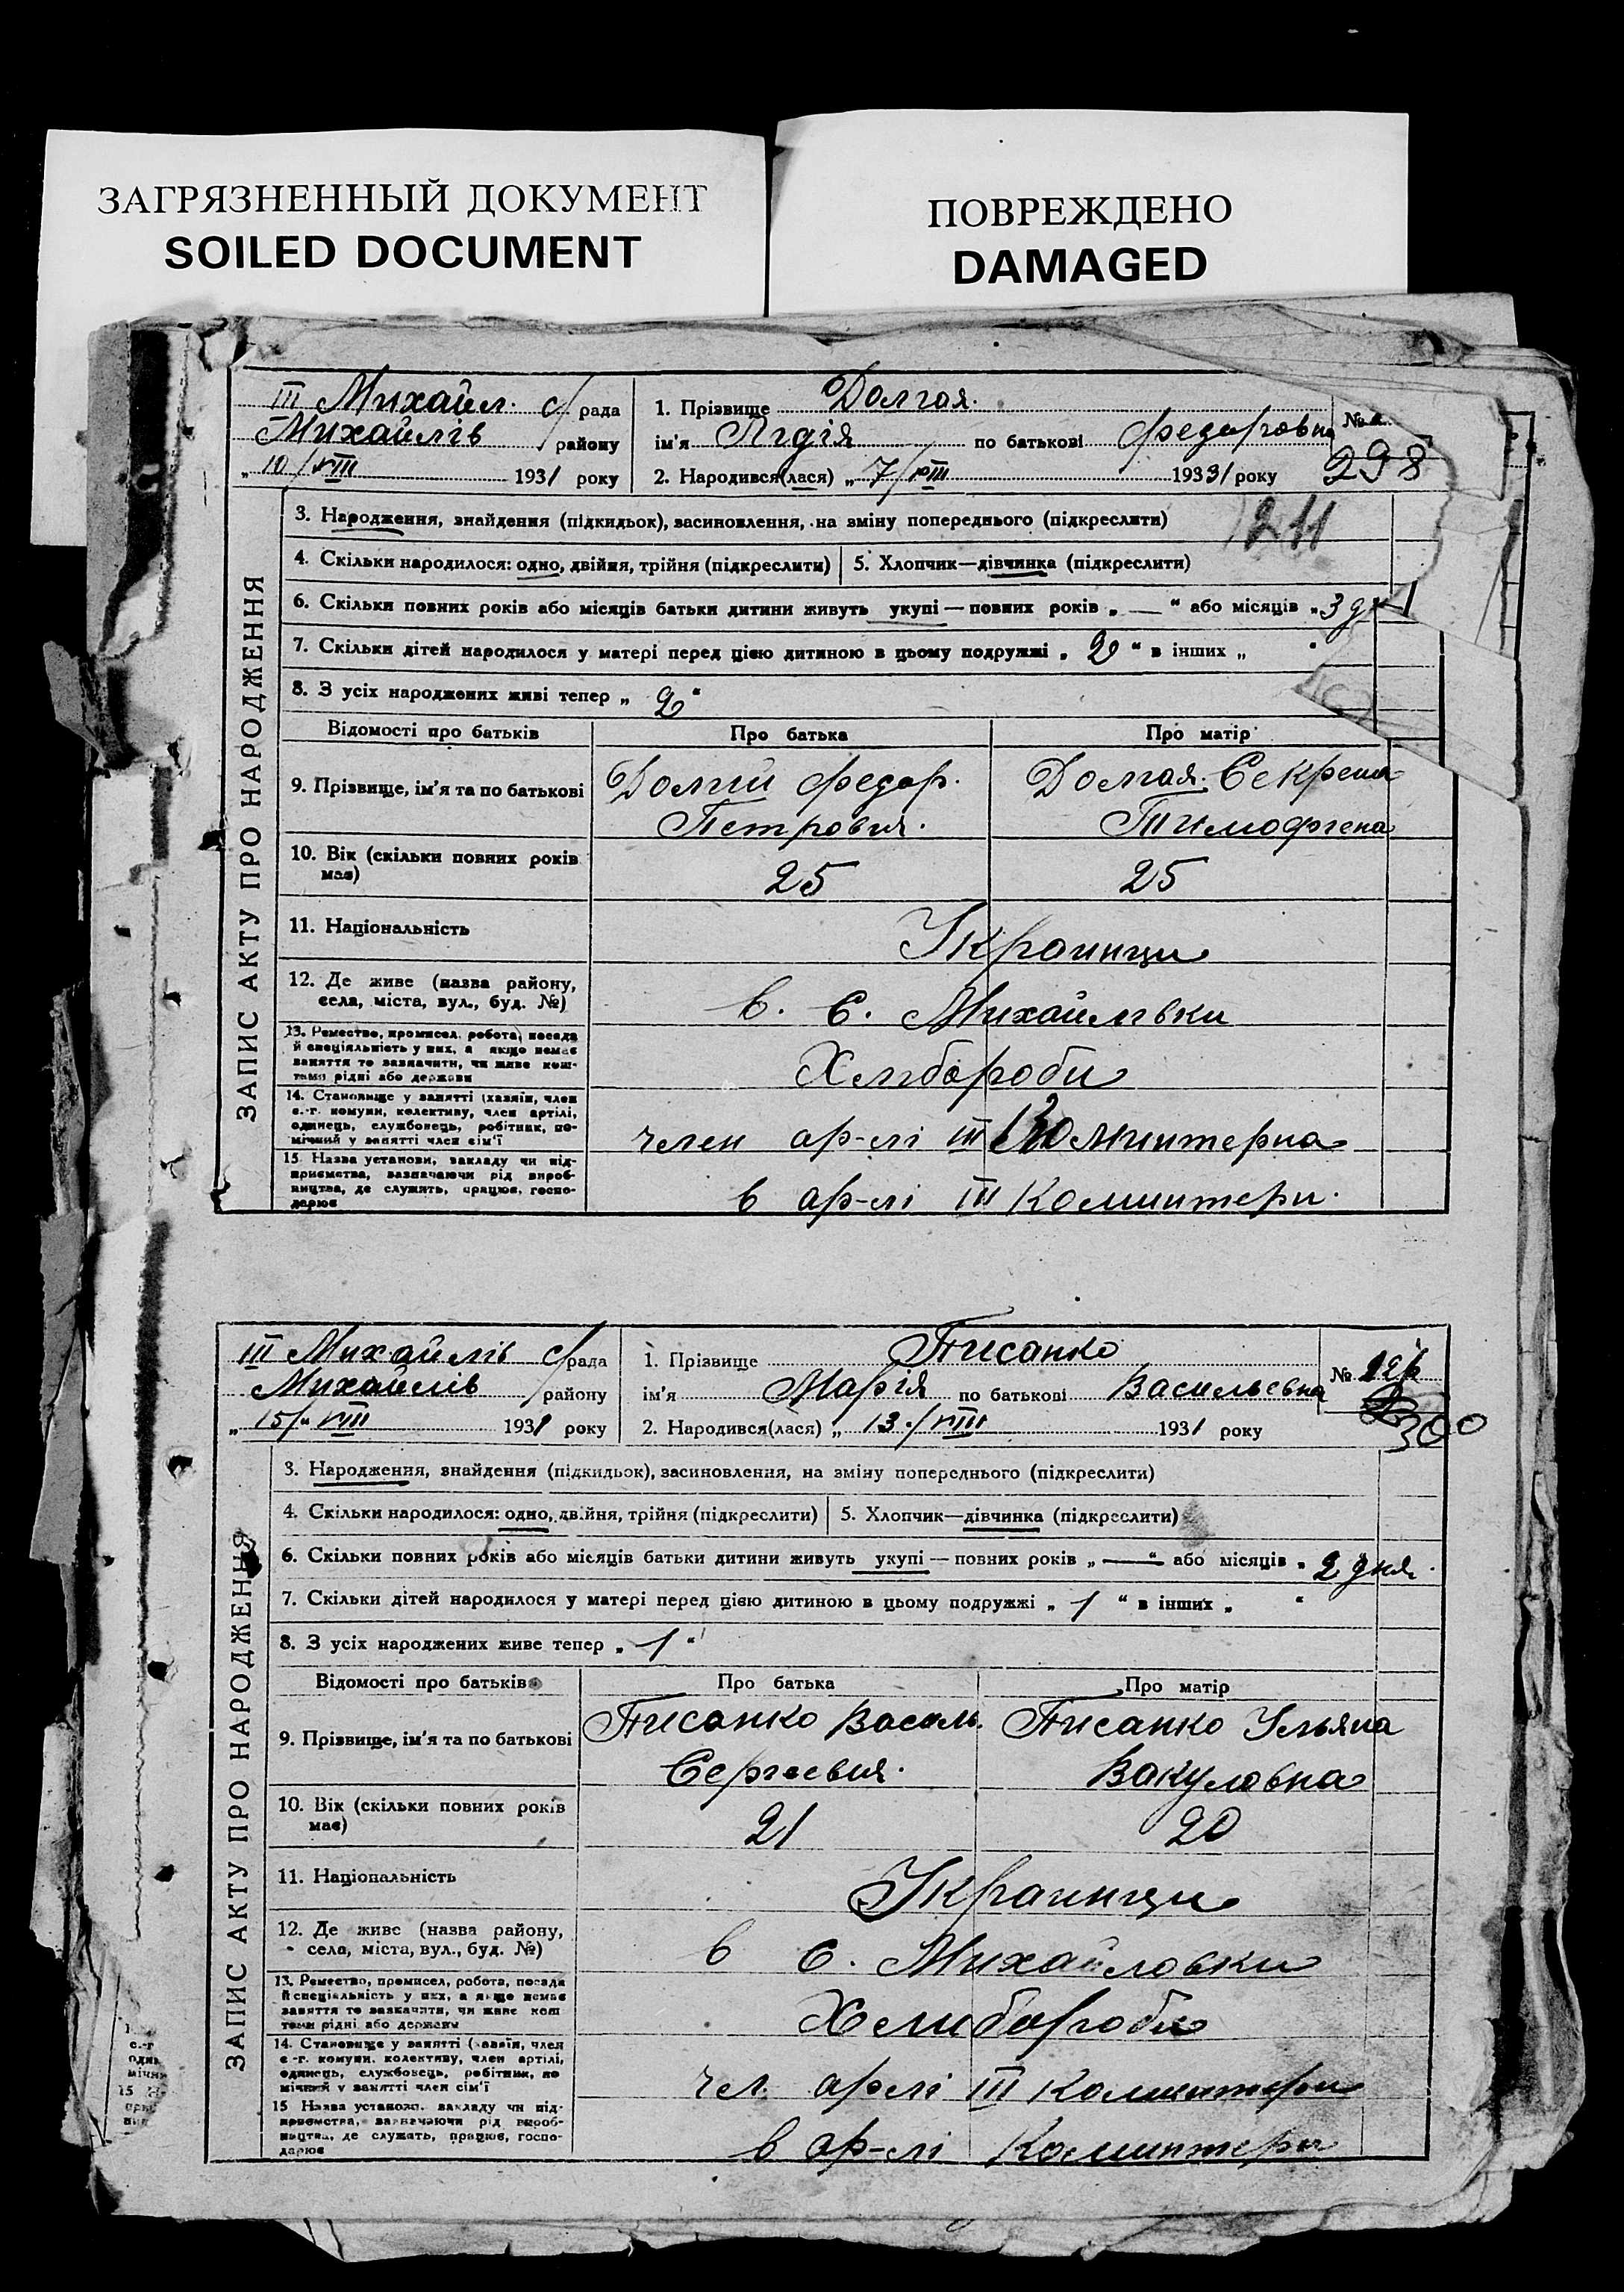 ЗАГРЯЗНЕННЫЙ ДОКУМЕНТ
SOILED DOCUMENT
ПОВРЕЖДЕНО
DAMAGED
ЗАПИС АКТУ ПРО НАРОДЖЕННЯ
III Михайл. с/рада
Михайлів району
„10/VIII 1931 року
1. Прізвище Долгая.
ім'я Лідія по батькові Федоровна
2. Народився(лася) „7/VIII 1931 року
№
298
211
3. Народження, знайдення (підкидьок), засиновлення, на зміну попереднього (підкреслити)
4. Скільки народилося: одно, двійня, трійня (підкреслити)
5. Хлопчик—дівчинка (підкреслити)
6. Скільки повних років або місяців батьки дитини живуть укупі — повних років „ — “ або місяців „ 3
7. Скільки дітей народилося у матері перед цією дитиною в цьому подружжі „ 2 “ в інших „
8. З усіх народжених живі тепер „ 2 “
Відомості про батьків Про батька Про матір
9. Прізвище, ім'я та по батькові
Долгий Федор.
Петрович.
Долгая
10. Вік (скільки повних років має) 25 25
11. Національність Украинци
12. Де живе (назва району, села, міста, вул., буд. №) в. с. Михайлівки
13. Ремество, промисел, робота, посада
й спеціяльність у них, а якщо немає
заняття то зазначити, чи живе кош-
тами рідні або держави
Хлібороби
14. Становище у занятті (хазяїн, член
с.-г. комуни, колективу, член артілі,
одинець, службовець, робітник, по-
мічний у занятті член сім'ї
член ар-лі III Коминтерна
15. Назва установи, закладу чи під-
приємства, зазначаючи рід вироб-
ництва, де служить, працює, госпо-
дарює
в ар-лі III Коминтерн.
ЗАПИС АКТУ ПРО НАРОДЖЕННЯ
III Михайлів с/рада
Михайлів району
„15/VIII 1931 року
1. Прізвище Писанко
ім'я Марія по батькові Васильевна
2. Народився(лася) „13/VIII 1931 року
№
300
3. Народження, знайдення (підкидьок), засиновлення, на зміну попереднього (підкреслити)
4. Скільки народилося: одно, двійня, трійня (підкреслити)
5. Хлопчик—дівчинка (підкреслити)
6. Скільки повних років або місяців батьки дитини живуть укупі — повних років „ — “ або місяців „ 2 дня.
7. Скільки дітей народилося у матері перед цією дитиною в цьому подружжі „ 1 “ в інших „ “
8. З усіх народжених живе тепер „ 1 “
Відомості про батьків Про батька Про матір
9. Прізвище, ім'я та по батькові
Писанко Василь.
Сергеевич.
Писанко Ульяна
Вакуловна
10. Вік (скільки повних років має) 21 20
11. Національність Украинци
12. Де живе (назва району, села, міста, вул., буд. №) в с. Михайловки
13. Ремество, промисел, робота, посада
й спеціяльність у них, а якщо немає
заняття то зазначити, чи живе кош
тами рідні або держави
Хлибороби
14. Становище у занятті (хазяїн, член
с.-г. комуни, колективу, член артілі,
одинець, службовець, робітник, по
мічний у занятті член сім'ї
чл. арлі III Коминтерн
15 Назва установи, закладу чи під-
приємства, зазначаючи рід вироб-
ництва, де служить, працює, госпо-
дарює
в ар-лі Коминтерн